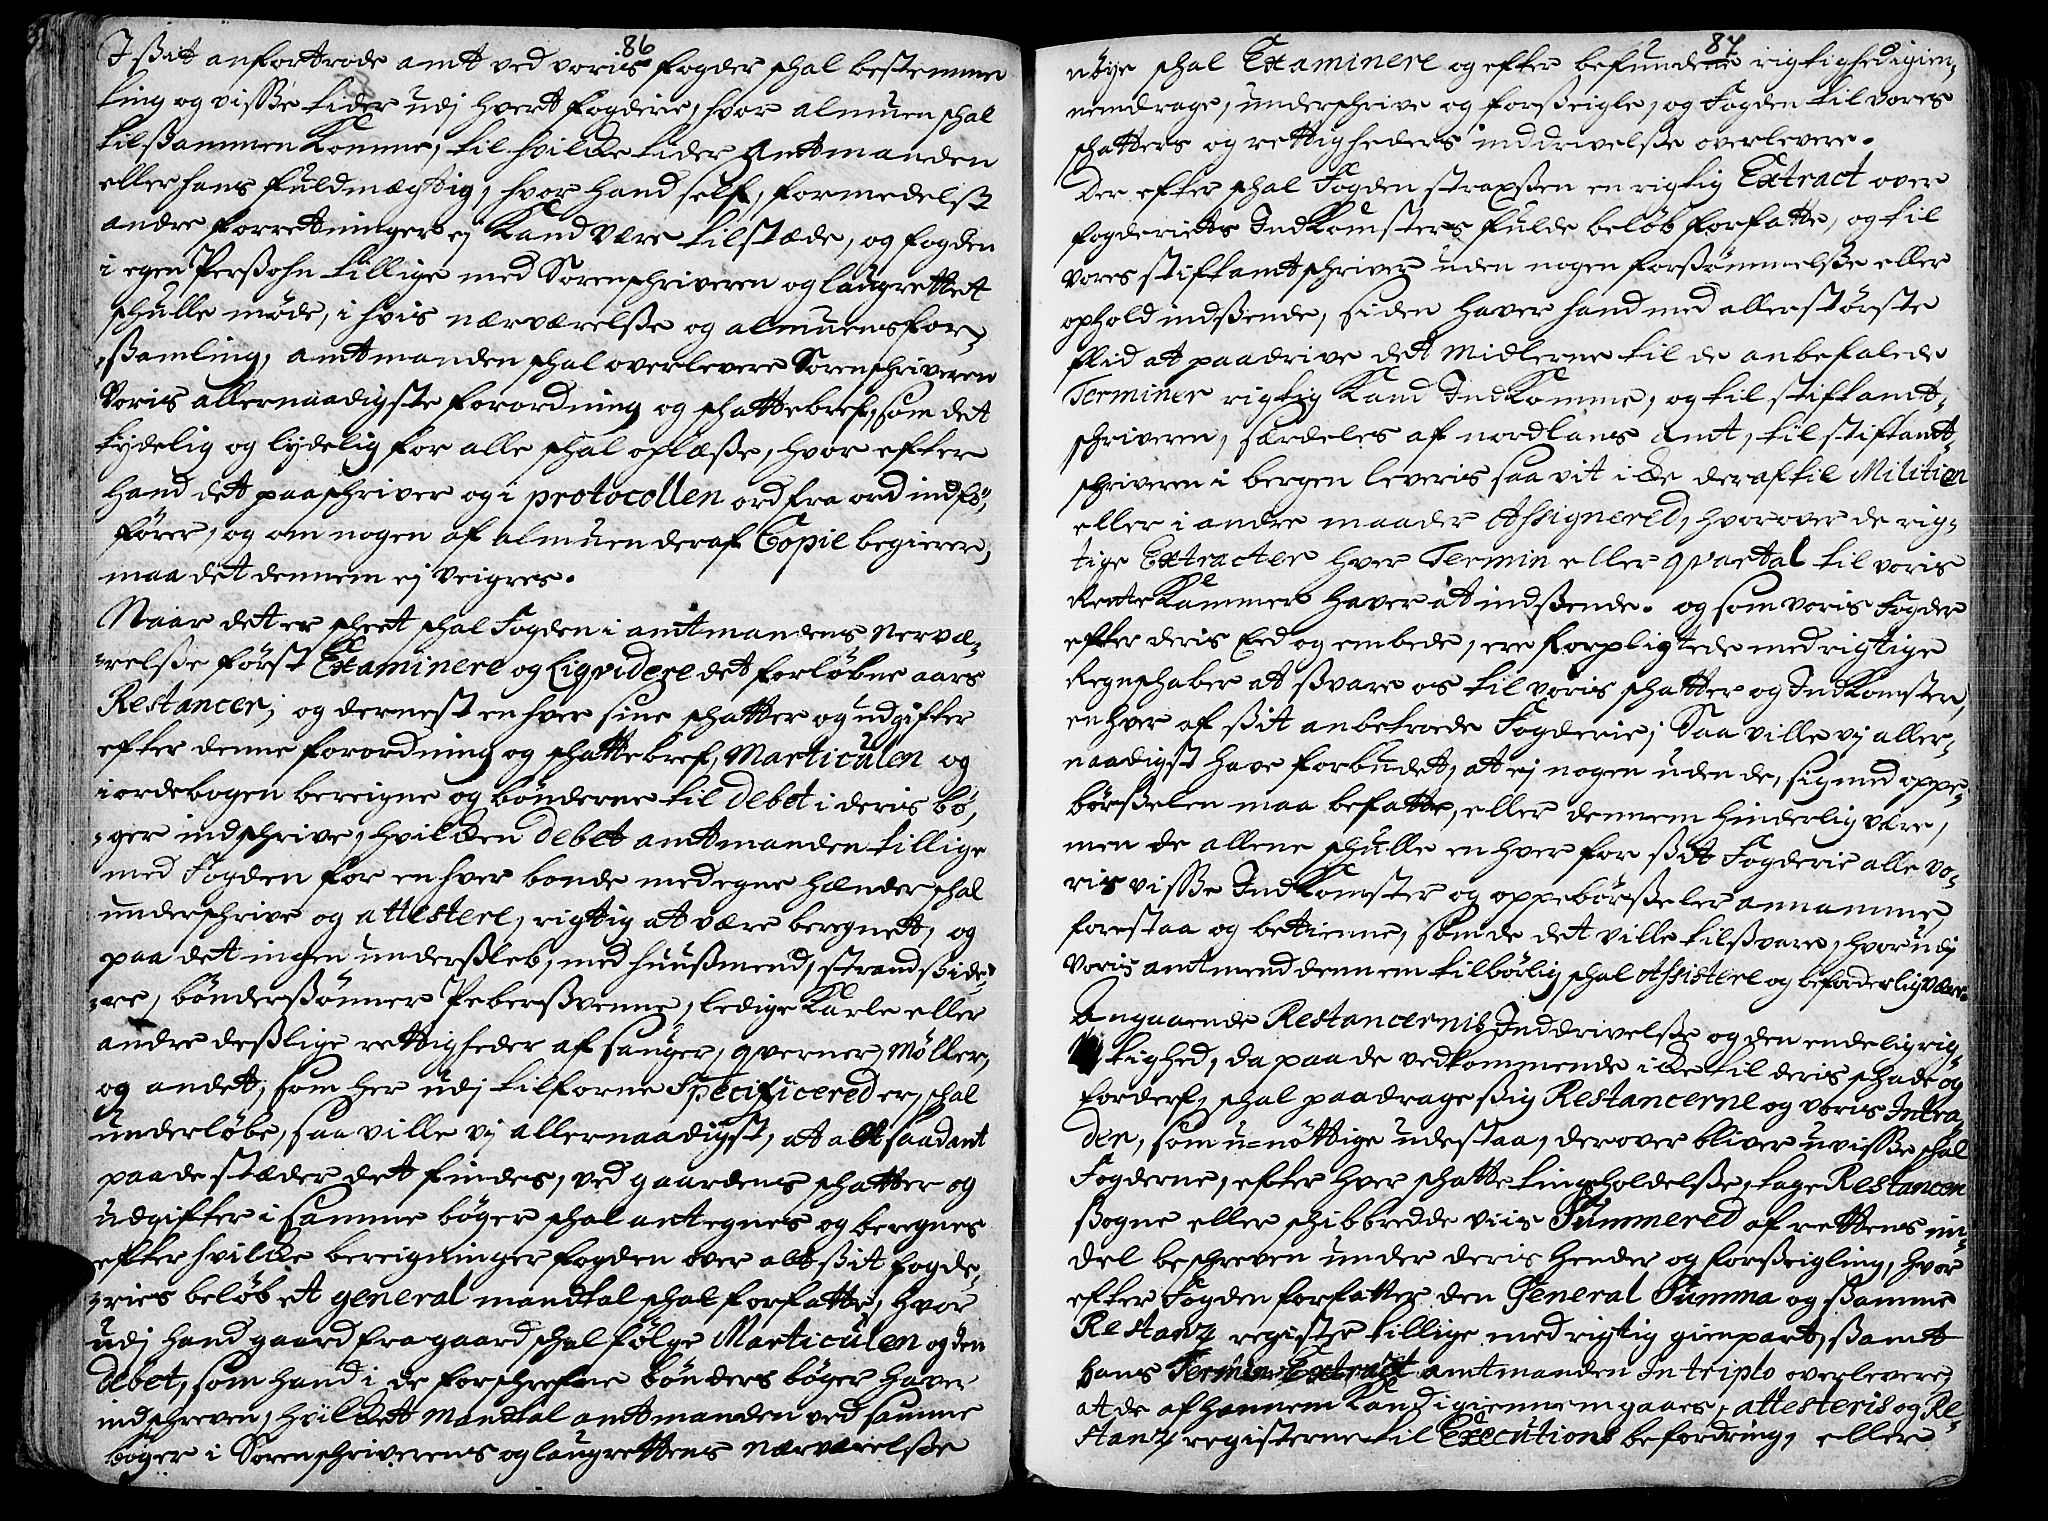 86
I ßit anfortrode amt ved voris fogder schal bestemme
ting og visse tider udj hvert fogderie, hvor almuen schal
tilßammen komme, til hvilcke tider Amtmanden
eller hans fuldmægtig, hvor hand self, formedelst
andre forretninger ej kand være tilstæde, og fogden
i egen Perßohn tillige med Sorenschriveren og laugrettet
schulle møde, i hvis nærværelße og almuens for-
ßamling, amtmanden schal overlevere Sorenschriveren
Voris allernaadigste forordning og schattebref, som det
tydelig og lydelig for alle schal oplæße, hvor efter
hand det paaschriver og i protocollen ord fra ord indfø-
fører, og om nogen af almuen deraf Copie begierer,
maa det dennem ej veigres.
Naar det er scheet schal Fogden i amtmandens nervæ-
relße først Examinere og Liqvidere det forløbne aars
Restancer; og dernest en hver sine schatter og udgifter
efter denne forordning og schattebref, Marticulen og
iordebogen bereigne og bønderne til debet i deris bø-
ger indschrive, hvilcken debet amtmanden tillige
med Fogden for en hver bonde med egne hænder schal
underschrive og attestere, rigtig at være beregnet, og
paa det ingen underßleb, med huußmend, strandßide-
re, bønderßønner Peberßvenne, ledige Karle eller
andre deßlige rettigheder af sauger, qverner, Møller,
og andet, som her udj tilforne Specificered er, schal
underløbe, saa ville vj allernaadigst, at alt saadant
paa de stæder det findes, ved gaardens schatter og
udgifter i samme bøger schal antegnes og beregnes
efter hvilcke bereigninger fogden over alt ßit fogde-
ries beløb et general mandtal schal forfatte, hvor
udj hand gaard fra gaard schal følge Marticulen og den
debet, som hand i de forschrefne bønders bøger haver
indschreven, hvilcket Mandtal amtmanden ved samme
bøger i Sorenschriverens og laugrettens nærværelße
87
nøye schal Examinere og efter befundene rigtighed igien-
nemdrage, underschrive og forßeigle, og Fogden til vores
schatters og rettigheders inddrivelße overlevere.
Der efter schal Fogden strapßen en rigtig Extract over
fogderiets Indkomsters fulde beløb forfatte, og til
vores stiftamtschriver uden nogen forßømmelße eller
ophold indßende, siden haver hand med allerstørste
flid at paadrive det midlerne til de anbefalede
Terminer rigtig kand Indkomme, og til stiftamt-
schriveren, særdeles af nordlans amt, til stiftamt-
schriveren i bergen leveris saa vit icke deraf til Militien
eller i andre maader Assignered, hvorover de rig-
tige Extracter hver Termin eller qvartal til voris
Rentekammer haver at indßende. og som voris Fogder
efter deris Eed og embede, ere forpligtede med rigtige
Regnschaber at ßvare os til voris schatter og Indkomster,
en hver af ßit anbetroede Fogderie; Saa ville vj aller-
naadigst have forbudet, at ej nogen uden de, sig med oppe-
børßelen maa befatte, eller dennem hinderlig være,
men de allene schulle en hver for ßit Fogderie alle vo-
ris visse Indkomster og oppebørßeler annamme,
forestaa og betienne, som de det ville tilßvare, hvor udj
Voris amtmend dennem tilbørlig schal Assistere og beforderlig være.
Angaaende Restancernis Inddrivelße og den endelig rig-
tighed, da paa de vedkommende icke til deris schade og
forderf, schal paadrage ßig Restancerne og voris Intra-
der, som u=nøttige udestaa, derover bliver uvisse schal
Fogderne, efter hver schatte tings holdelße, tage Restancen
ßogne eller schibbredde viis Summered af rettens mi-
del beschreven under deris hender og forßeigling, hvor
efter Fogden forfatter den General Summa og ßamme
Restanz register tillige med rigtig gienpart, ßamt
hans Termin Extract amtmanden In triplo overlevere,
at de af hannem kand igiennemgaaes, attesteris og Re-
stanz registerne til Executions befordring, eller